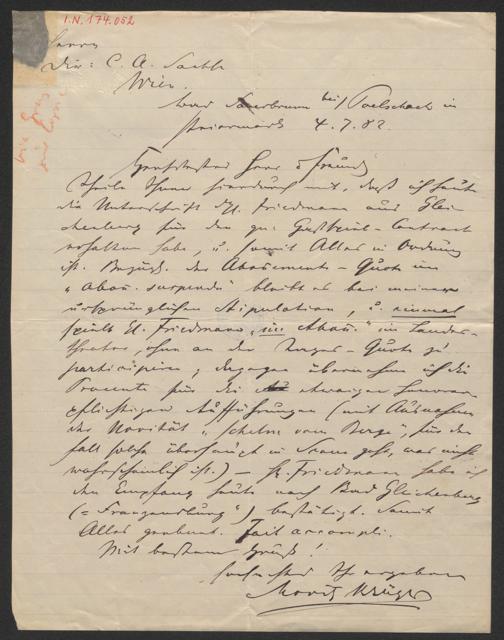 I.N. 174.052
Herrn
Dir: C. A. Sachse
Wien.
Bad Sauerbrunn bei Poelschach in
Steiermark 4.7.82.
Geehrtester Herr & Freund
theile Ihnen hierdurch mit, daß ich heute
die Unterschrift d. H. Friedmann aus Glei-
chenberg für den Gastspiel-Contract
erhalten habe, u. somit Alles in Ordnung
ist. Bezügl. der Abonements-Quote im
"Abon. suspendu" bleibt es bei meiner
ursprünglichen Stipulation, u. einmal
spielt H. Friedmann "im Abon." im Landes-
theater, ohne an der Quote zu
participiren; dagegen übernehme ich die
Procente für die etwaigen honorar-
pflichtigen Aufführungen (mit Ausnahme
der Novität "Schelm vom Berge", für den
Fall solche überhaupt in Scene geht, was nicht
wahrscheinlich ist.) — H. Friedmann habe ich
den Empfang heute nach Bad Gleichenberg
(= "Franzensburg") bestätigt. Somit
Alles geebnet. Fait accompli.
Mit bestem Gruß!
Ihr ergebener
Moritz Krüger